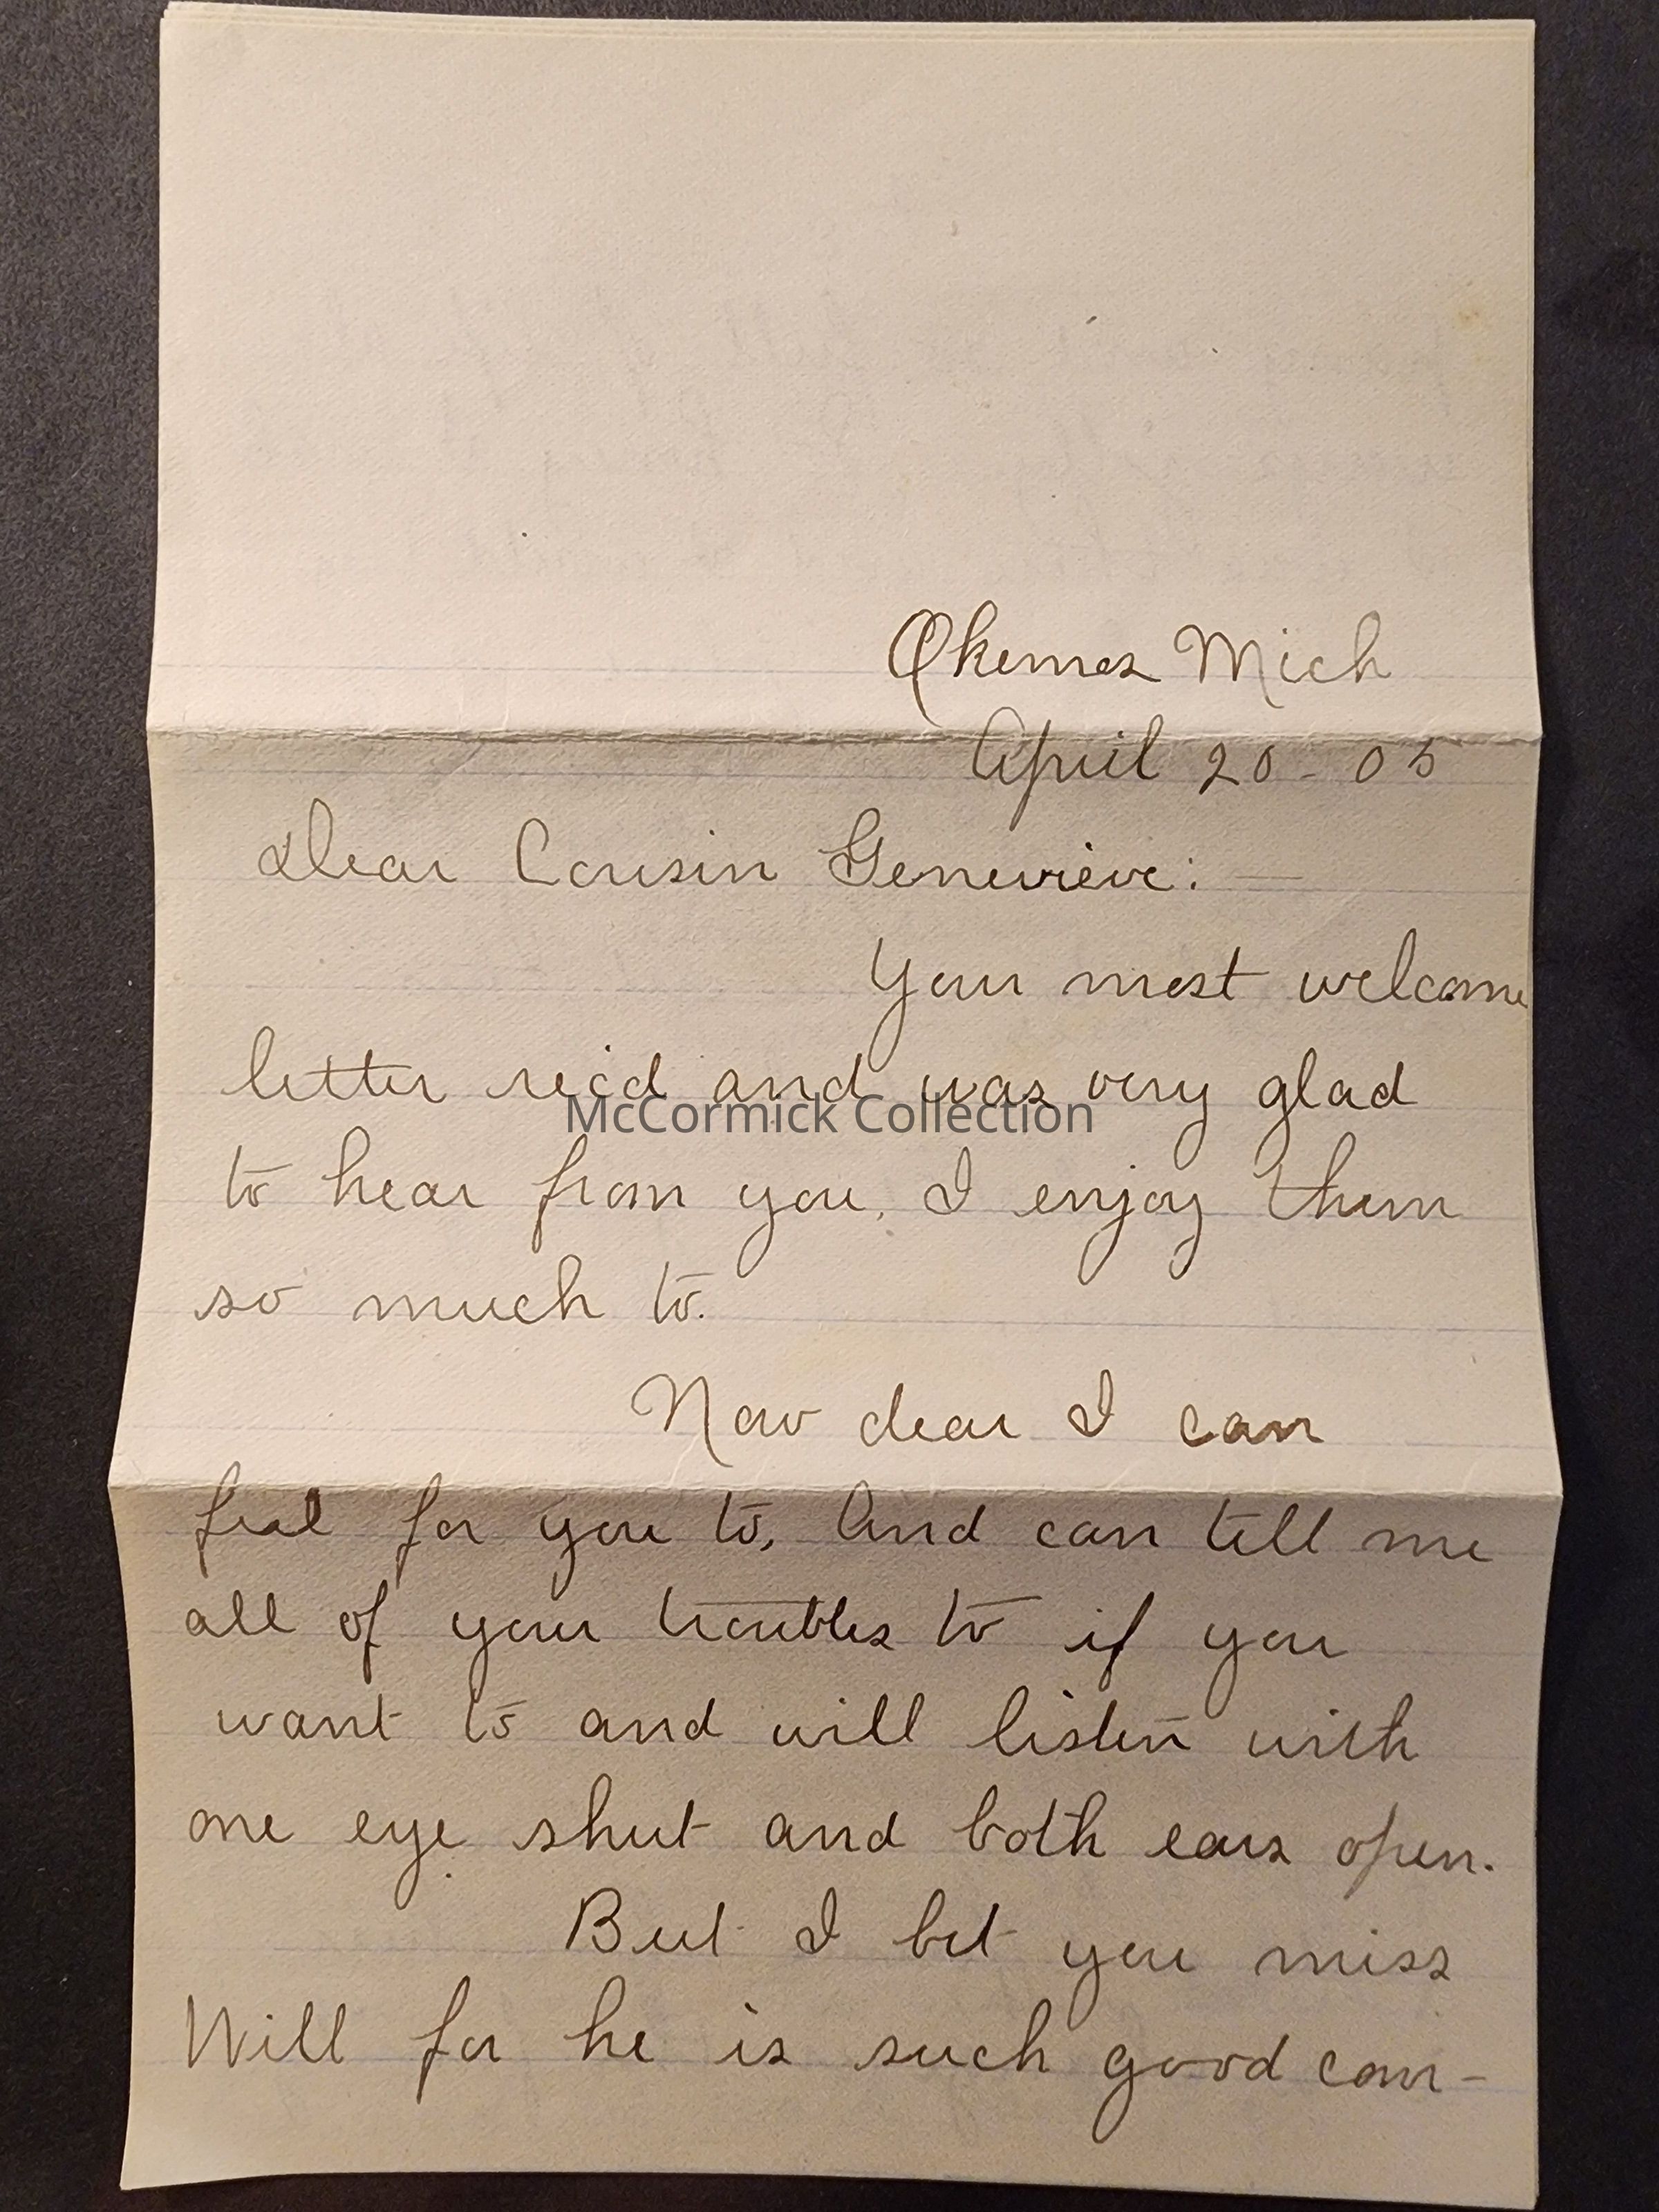 Okemos Mich
April 20-05
Dear Cousin Genevieve:—
Your most welcome
letter recd and was very glad
to hear from you, I enjoy them
so much to.
Now dear I can
feal for you to, And can tell me
all of your troubles to if you
want to and will listen with
one eye shut and both ears open.
But I bet you miss
Will for he is such good com-
McCormick Collection